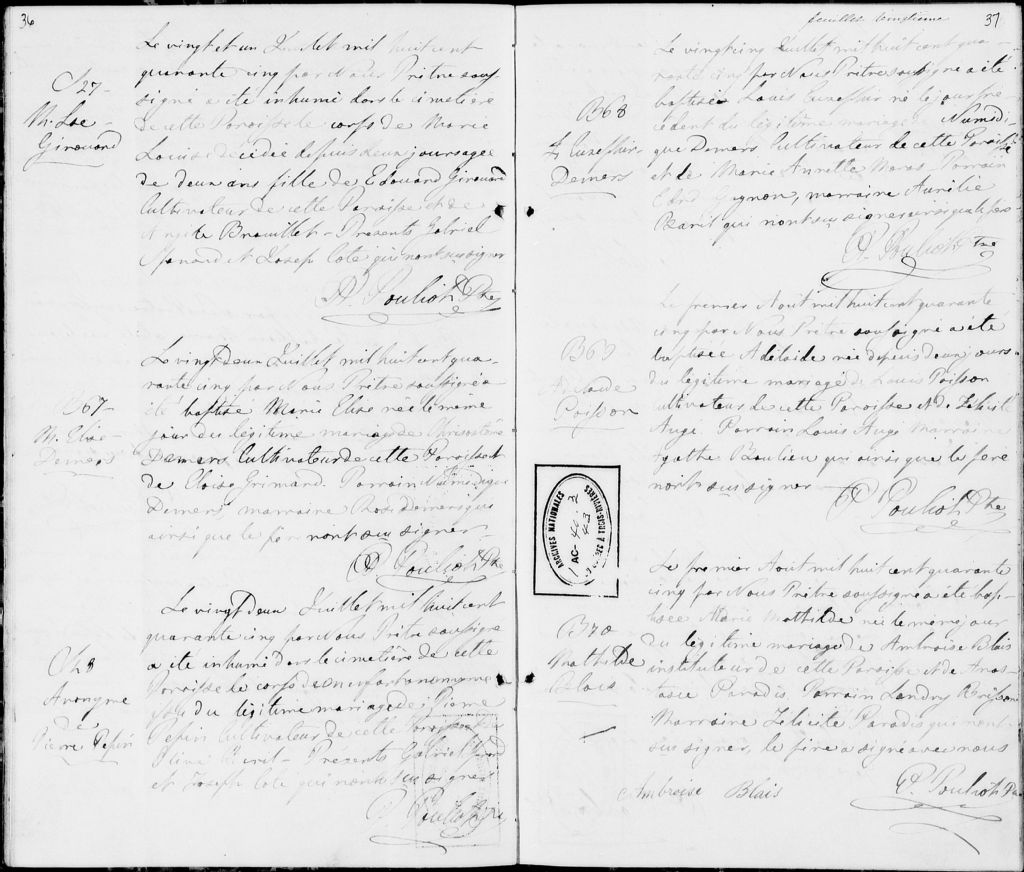 36
S27
M. Lse
Girouard
Le vingt et un Juillet mil huit cent
quarante cinq par Nous Prêtre sous
signé a été inhumé dans le cimetière
de cette Paroisse le corps de Marie
Louise décédée depuis deux jours agée
de deux ans fille de Edouard Girouard
Cultivateur de cette Paroisse et de
Brouillet - Présents Gabriel
et Joseph Coté qui n'ont su signer
P. Pouliot Ptre
B67
M. Elise
Demers
Le vingt deux Juillet mil huit cent qua-
rante cinq par Nous Prêtre soussigné a
été baptisé Marie Elise née le même
jour du légitime mariage de
Demers Cultivateur de cette Paroisse et
de Eloise Grimard. Parrain Numedique
Demers marraine Rose Demers qui
ainsi que le père n'ont su signer -
P. Pouliot Ptre
S28
Anonyme
de
Pierre Pepin
Le vingt deux Juillet mil huit cent
quarante cinq par Nous Prêtre soussigné
a été inhumé dans le cimetière de cette
Paroisse le corps d'un enfant anonyme
du légitime mariage de Pierre
Pepin Cultivateur de cette Paroisse
Présents Gabriel
et Joseph Coté qui n'ont su signer
P. Pouliot Ptre
feuillet vingtième
37
B68
Demers
Le vingt cinq Juillet mil huit cent qua-
rante cinq par Nous Prêtre soussigné a été
baptisé Louis né le jour pré-
cédent du légitime mariage de Numedi-
que Demers Cultivateur de cette Paroisse
et de Marie Parrain
Edrd Gagnon, marraine Aurélie
qui n'ont su signer ainsi que le père
P. Pouliot Ptre
B69
Adelaide
Poisson
Le premier Aout mil huit cent quarante
cinq par Nous Prêtre soussigné a été
baptisée Adelaide née depuis deux jours
du légitime mariage de Louis Poisson
cultivateur de cette Paroisse et de Félicité
Augé. Parrain Louis Augé Marraine
Agathe Beaulieu qui ainsi que le père
n'ont su signer
P. Pouliot Ptre
ARCHIVES NATIONALES
AC-
B70
Mathilde
Blais
Le premier Aout mil huit cent quarante
cinq par Nous Prêtre soussigné a été bap-
tisée Marie Mathilde née le même jour
du légitime mariage de Ambroise Blais
instituteur de cette Paroisse et de Anas-
tasie Paradis. Parrain Landry Brisson
Marraine Félicité Paradis qui n'ont
su signer, le père a signé avec nous
Ambroise Blais
P. Pouliot Ptre